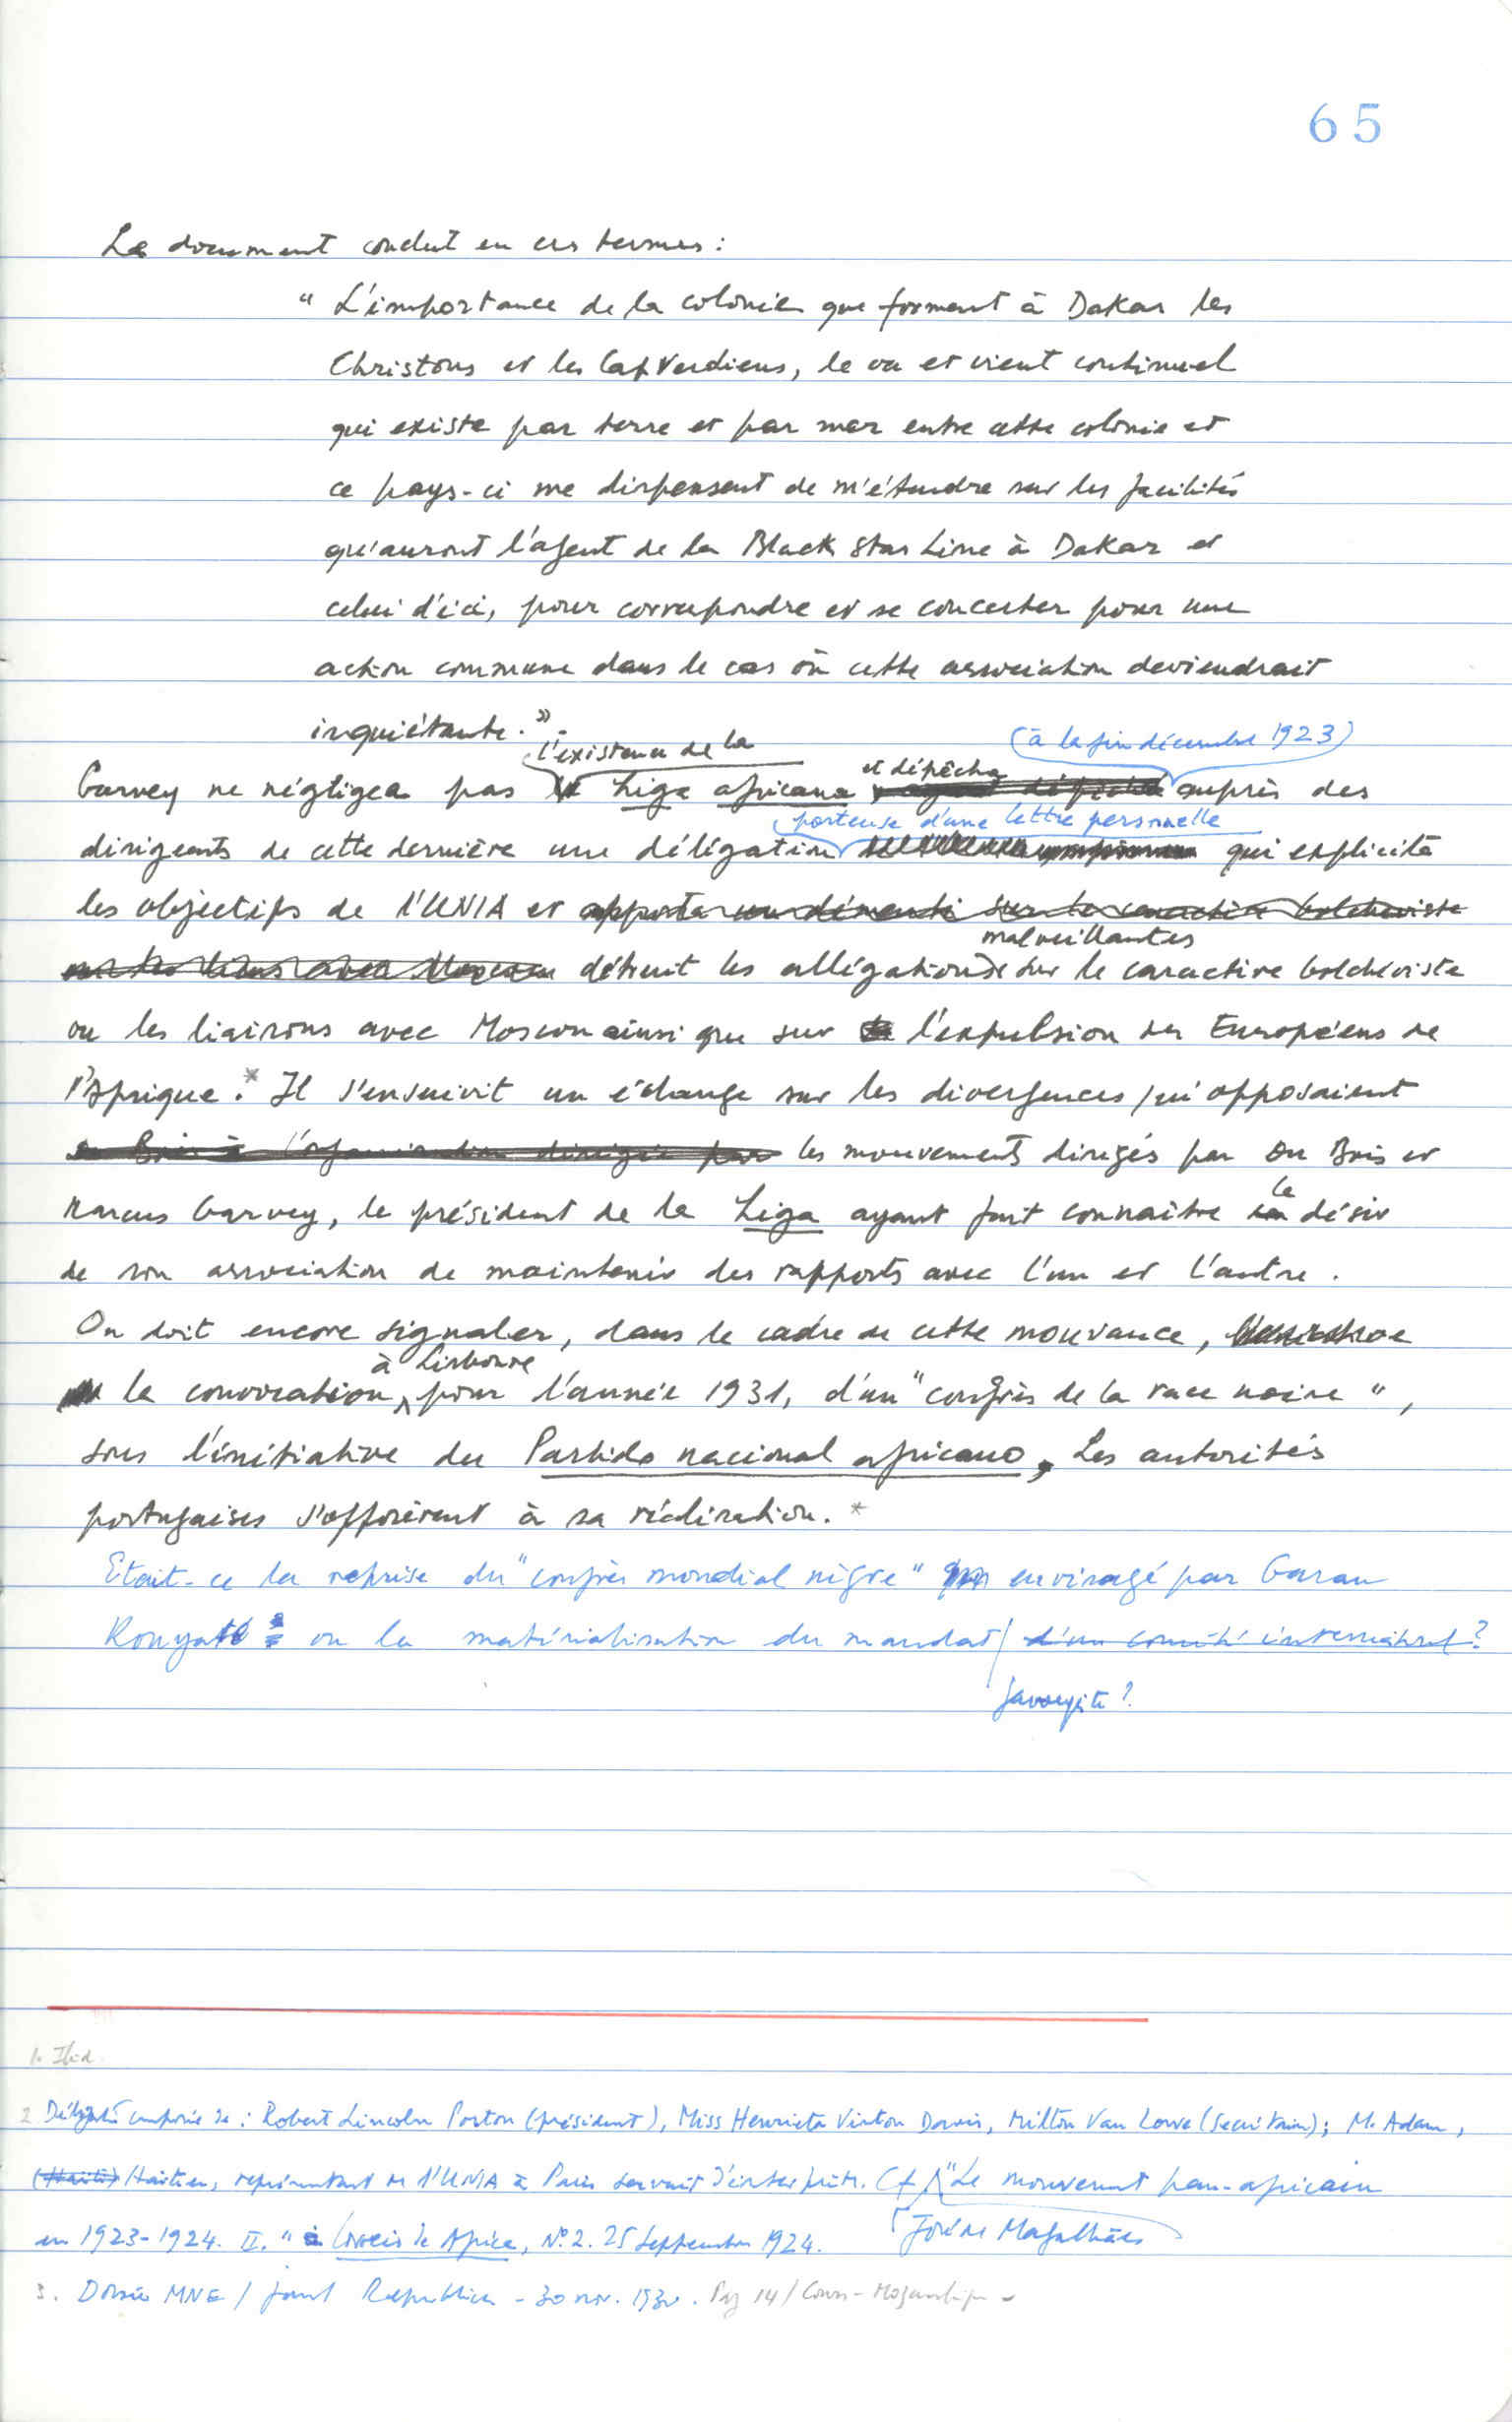 65
Le document conclut en ces termes :
" L'importance de la colonie que forment à Dakar les
Christons et les CapVerdiens, le va et vient continuel
qui existe par terre et par mer entre cette colonie et
ce pays-ci me dispensent de m'étendre sur les facilités
qu'auront l'agent de la Black Star Line à Dakar et
celui d'ici, pour correspondre et se concerter pour une
action commune dans le cas où cette association deviendrait
inquiétante. ".
l'existence de la (à la fin décembre 1923)
Garvey ne négligea pas Liga africana et dépêcha auprès des
porteuse d'une lettre personnelle
dirigeants de cette dernière une délégation qui explicita
les objectifs de l'UNIA et apporta un démenti sur le caractère bolcheviste
malveillantes
sur les liens avec Moscou détruit les allégations sur le caractère bolchéviste
ou les liaisons avec Moscou ainsi que sur l'expulsion des Européens de
l'Afrique.* Il s'ensuivit un échange sur les divergences qu'opposaient
Du Bois à l'organisation dirigée par les mouvements dirigés par Du Bois et
Marcus Garvey, le président de la Liga ayant fait connaître le désir
de son association de maintenir des rapports avec l'un et l'autre.
On doit encore signaler, dans le cadre de cette mouvance,
à Lisbonne
la convocation, pour l'année 1931, d'un "congrès de la race noire ",
sous l'initiative du Partido nacional africano. Les autorités
portugaises s'opposèrent à sa réalisation. *
Etait-ce la reprise du "congrès mondial nègre" envisagé par Garan
Kouyaté ou la matérialisation du mandat d'un comité international ?
garveyite ?
1. Ibid.
2 Délégation composée de : Robert Lincoln Poston (président), Miss Henrieta Vinton Davis, Milton Van Lowe (Secrétaire); M. Adam,
(Haïti) Haïtien, représentant de l'UNIA à Paris servait d'interprète. Cf "Le mouvement pan-africain
en 1923-1924. II. " Correio de Africa, Nº 2. 25 Septembre 1924. José de Magalhães
3. Dossier MNE / Republica - 30 nov. 1930. Pag 14 /